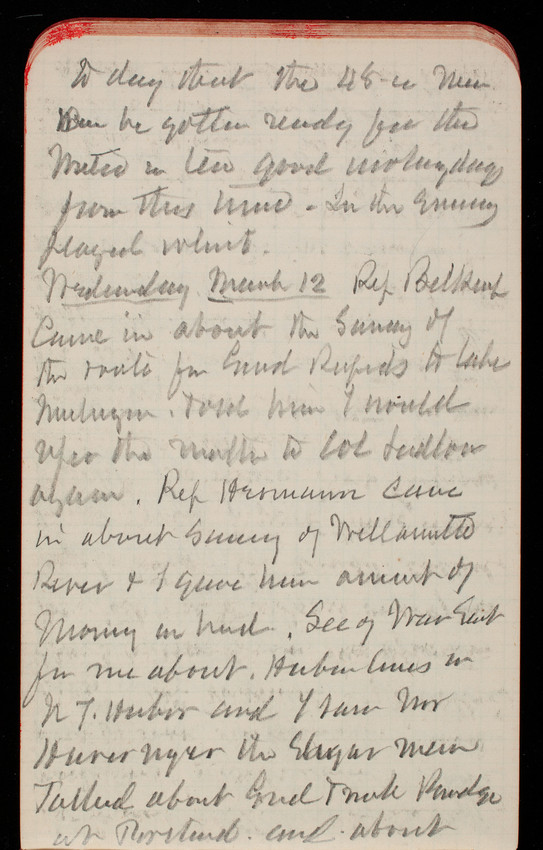 to day that the 48 in Main
be gotten ready for the
in ten good working days
from this time - In the Evening
played whist.
Wednesday March 12 Rep Belknap
came in about the Survey of
the route for Grand Rapids to Lake
Michigan. told him I would
refer the matter to Col Ludlow
again. Rep Hermann came
in about Survey of Willamette
River & I gave him amount of
Money on hand. Sec of War sent
for me about Harbor lines in
N Y. Harbor and I saw Mr
Havemeyer the Sugar man
Talked about Grand Trunk Bridge
at Portland. and about